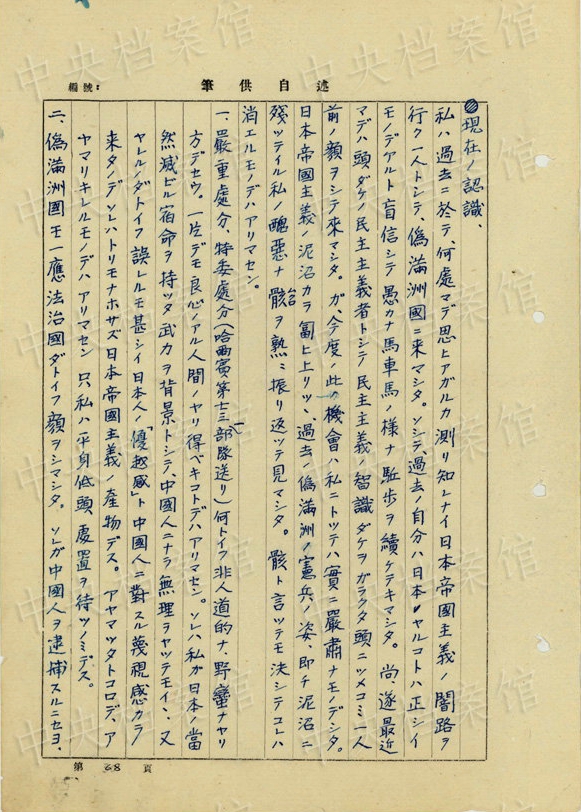 編號：
筆供自述
◎現在ノ認識、
私ハ過去ニ於テ、何處マデ思上アガルカ測リ知レナイ日本帝國主義ノ闇路ヲ
行ク一人トシテ、偽滿洲國ニ来マシタ。ソシテ、過去ノ自分ハ日本ノヤルコトハ正シイ
モノデアルト盲信シテ愚カナ馬車馬ノ様ナ駈歩ヲ續ケテキマシタ。尚、遂最近
マデハ頭ダケ民主主義者トシテ民主主義ノ智識ダケヲガラクタ頭ニツメコミ一人
前ノ顔ヲシテ来マシタ。ガ、今度ノ此ノ機會ハ私ニトツテハ實ニ嚴肅ナモノデシタ。
日本帝國主義ノ泥沼カラ匍ヒ上リツヽ、過去ノ偽滿洲ノ憲兵ノ姿、即チ泥沼ニ
殘ツテイル私ノ醜惡ナ骸ヲ熟〻振リ返ツテ見マシタ。骸ト言ツテモ決シテコレハ
消エルモノデハアリマセン。
一、嚴重處分、特委處分（哈爾賓第七三一部隊送リ）何トイフ非人道的ナ、野蠻ナヤリ
方デセウ。一片デモ良心ノアル人間ノヤリ得ベキコトデハアリマセン。ソレハ私ガ日本ノ當
然滅ビル宿命ヲ持ツタ武力ヲ背景トシテ、中國人ニナラ無理ヲヤツテモイヽ、又
ヤレルノダトイフ誤レルモ甚シイ日本人ノ「優越感」ト中國人ニ對スル蔑視感カラ
来タノデ、ソレハトリモナホサズ日本帝國主義ノ産物デス。アヤマツタトコロデ、ア
ヤマリキレルモノデハアリマセン、只、私ハ平身低頭處置ヲ待ツノミデス。
二、偽滿洲國モ一應法治國ダトイフ顔ヲシマシタ。ソレガ中國人ヲ逮捕スルニセヨ、
第 28 頁
中央档案馆